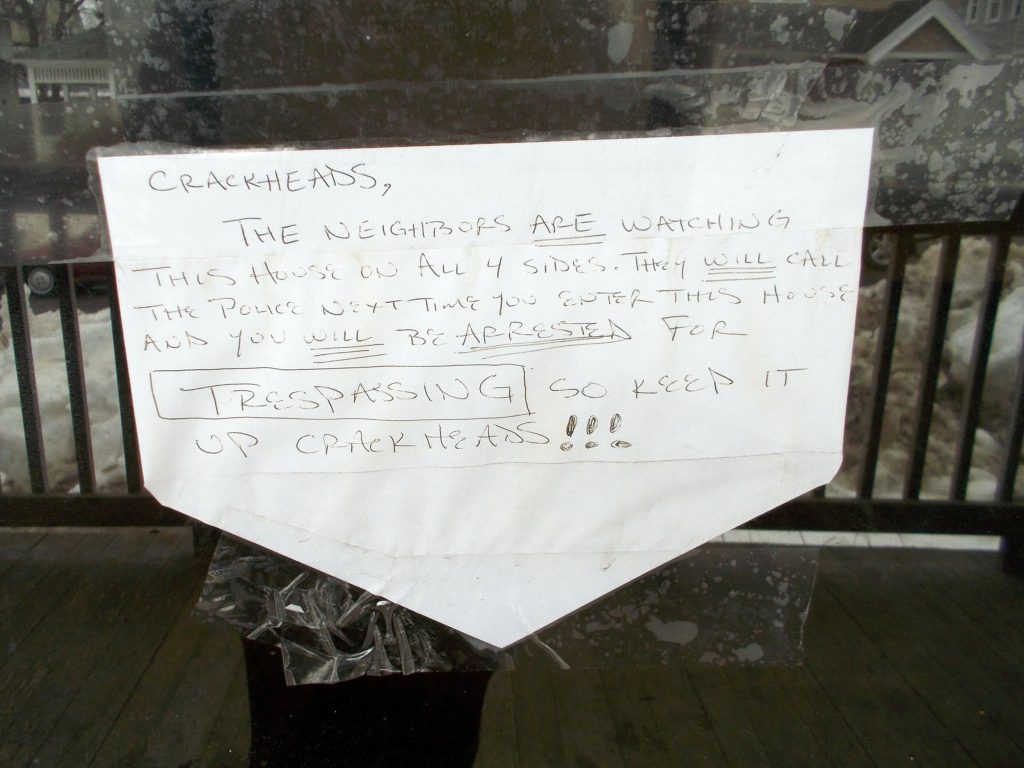 CRACKHEADS,
THE NEIGHBORS ARE WATCHING
THIS HOUSE ON ALL 4 SIDES. THEY WILL CALL
THE POLICE NEXT TIME YOU ENTER THIS HOUSE
AND YOU WILL BE ARRESTED FOR
TRESPASSING SO KEEP IT
UP CRACKHEADS!!!